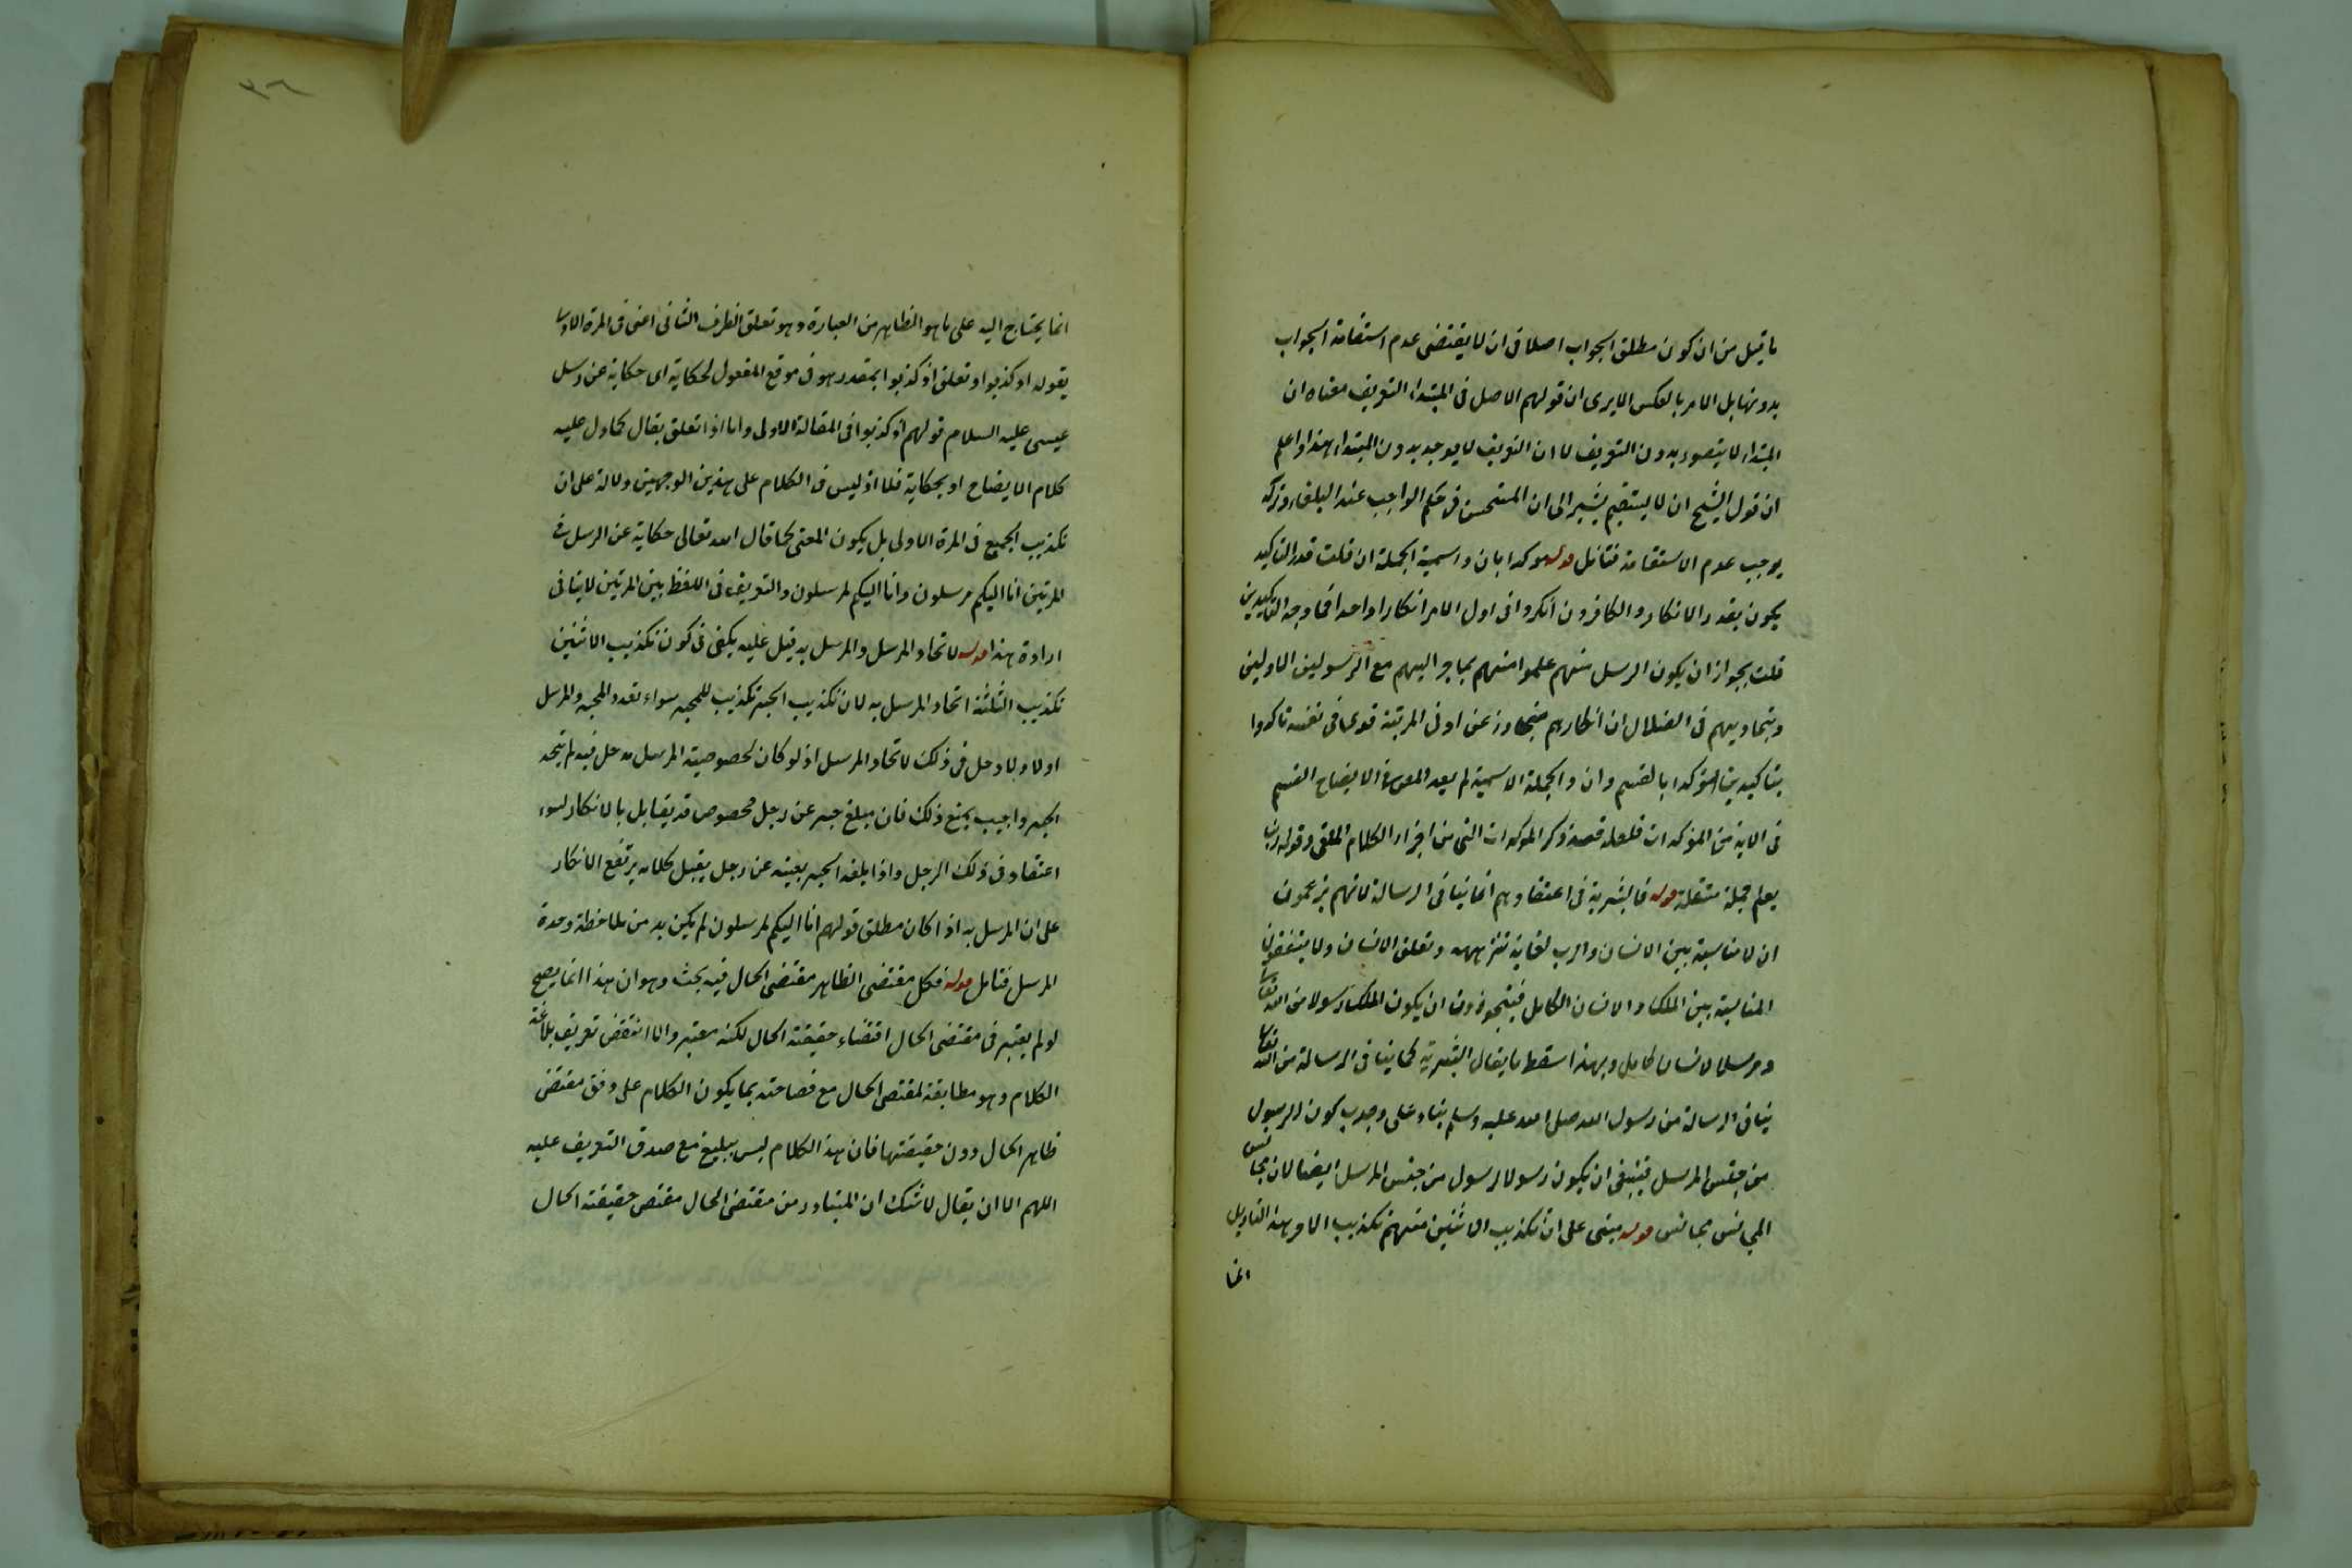 ما قيل من ان كون مطلق الجواب اصلا فى ان لا يقتضى عدم استقامة الجواب
بدونها بل الامر بالعكس الا يرى ان قولهم الاصل فى المبتداء التعريف معناه ان
المبتداء لا يتصور بدون التعريف لا ان التعريف لا يوجد بدون المبتداء هذا واعلم
ان قول الشيخ ان لا يستقيم يشير الى ان المستحسن فى حكم الواجب عند البلغاء وتركه
يوجب عدم الاستقامة فتامل قوله موكدا بان واسمية الجملة ان قلت قدر التاكيد
يكون بقدر الانكار والكافرون انكروا فى اول الامر انكارا واحدا فما وجه التاكيدين
قلت يجوز ان يكون الرسل منهم علموا منهم بما جرا اليهم مع الرسولين الاولين
وبتماديهم فى الضلال ان انكارهم متجاوز عن ادنى المرتبة قوعا فى نفسه فاكدوا
بتاكيدين قوله مؤكدا بالقسم وان والجملة الاسمية لم يعد المص فى الايضاح القسم
فى الاية من المؤكدات فلعله قصد ذكر الموكدات التى من اجزاء الكلام الملقى وقوله ربنا
يعلم جملة مستقلة قوله فالبشرية فى اعتقادهم انما ينافى الرسالة لانهم يزعمون
ان لا مناسبة بين الانسان والرب لغاية تنزهه وتعلق الانسان ولا ينتفقون
المناسبة بين الملك والانسان الكامل فيتجوزون ان يكون الملك رسولا من الله تعالى
ومرسلا لانسان كامل وبهذا سقط ما يقال البشرية كما ينافى الرسالة من الله تعالى
ينافى الرسالة من رسول الله صلى الله عليه وسلم بناء على وجوب كون الرسول
من جنس المرسل فينبغى ان يكون رسولا لرسول من جنس المرسل ايضا لان مجانس
المجانس مجانس قوله مبنى على ان تكذيب الاثنين منهم تكذيب الاخر هذا التاويل
انما
٣٦
انما يحتاج اليه على ما هو الظاهر من العبارة وهو تعلق الظرف الثانى اعنى فى المرة الاولى
بقوله اذ كذبوا وتعلق اذ كذبوا بمقدر هو فى موقع المفعول لحكاية اى حكاية عن رسل
عيسى عليه السلام قولهم اذ كذبوا فى المقالة الاولى واما اذا تعلق بقال كما دل عليه
كلام الايضاح او بحكاية فلا اذ ليس فى الكلام على هذين الوجهين دلالة على ان
تكذيب الجميع فى المرة الاولى بل يكون المعنى كما قال الله تعالى حكاية عن الرسل فى
المرتين انا اليكم مرسلون وانا اليكم لمرسلون والتعريف فى اللفظ بين المرتين لا ينافى
ارادة هذا قوله لاتحاد المرسل والمرسل به قيل عليه يكفى فى كون تكذيب الاثنين
تكذيب الثلثة اتحاد المرسل به لان تكذيب الخبر تكذيب للمخبر سواء تعدد المخبر والمرسل
اولا ولا دخل فى ذلك لاتحاد المرسل اذ لو كان لخصوصية المرسل مدخل فيه لم يتحد
الخبر واجيب بمنع ذلك فان مبلغ خبر عن رجل مخصوص قد يقابل بالانكار لسوء
اعتقاد فى ذلك الرجل واذا بلغه الخبر بعينه عن رجل يقبل كلامه يرتفع الانكار
على ان المرسل به اذا كان مطلق قولهم انا اليكم لمرسلون لم يكن بد من ملاحظة وحدة
المرسل فتامل قوله فكل مقتضى الظاهر مقتضى الحال فيه بحث وهو ان هذا انما يصح
لو لم يعتبر فى مقتضى الحال اقتضاء حقيقة الحال لكنه معتبر والا انتقض تعريف بلاغة
الكلام وهو مطابقة لمقتضى الحال مع فصاحته بما يكون الكلام على وفق مقتضى
ظاهر الحال دون حقيقتها فان هذا الكلام ليس ببليغ مع صدق التعريف عليه
اللهم الا ان يقال لا شك ان المتبادر من مقتضى الحال مقتضى حقيقة الحال